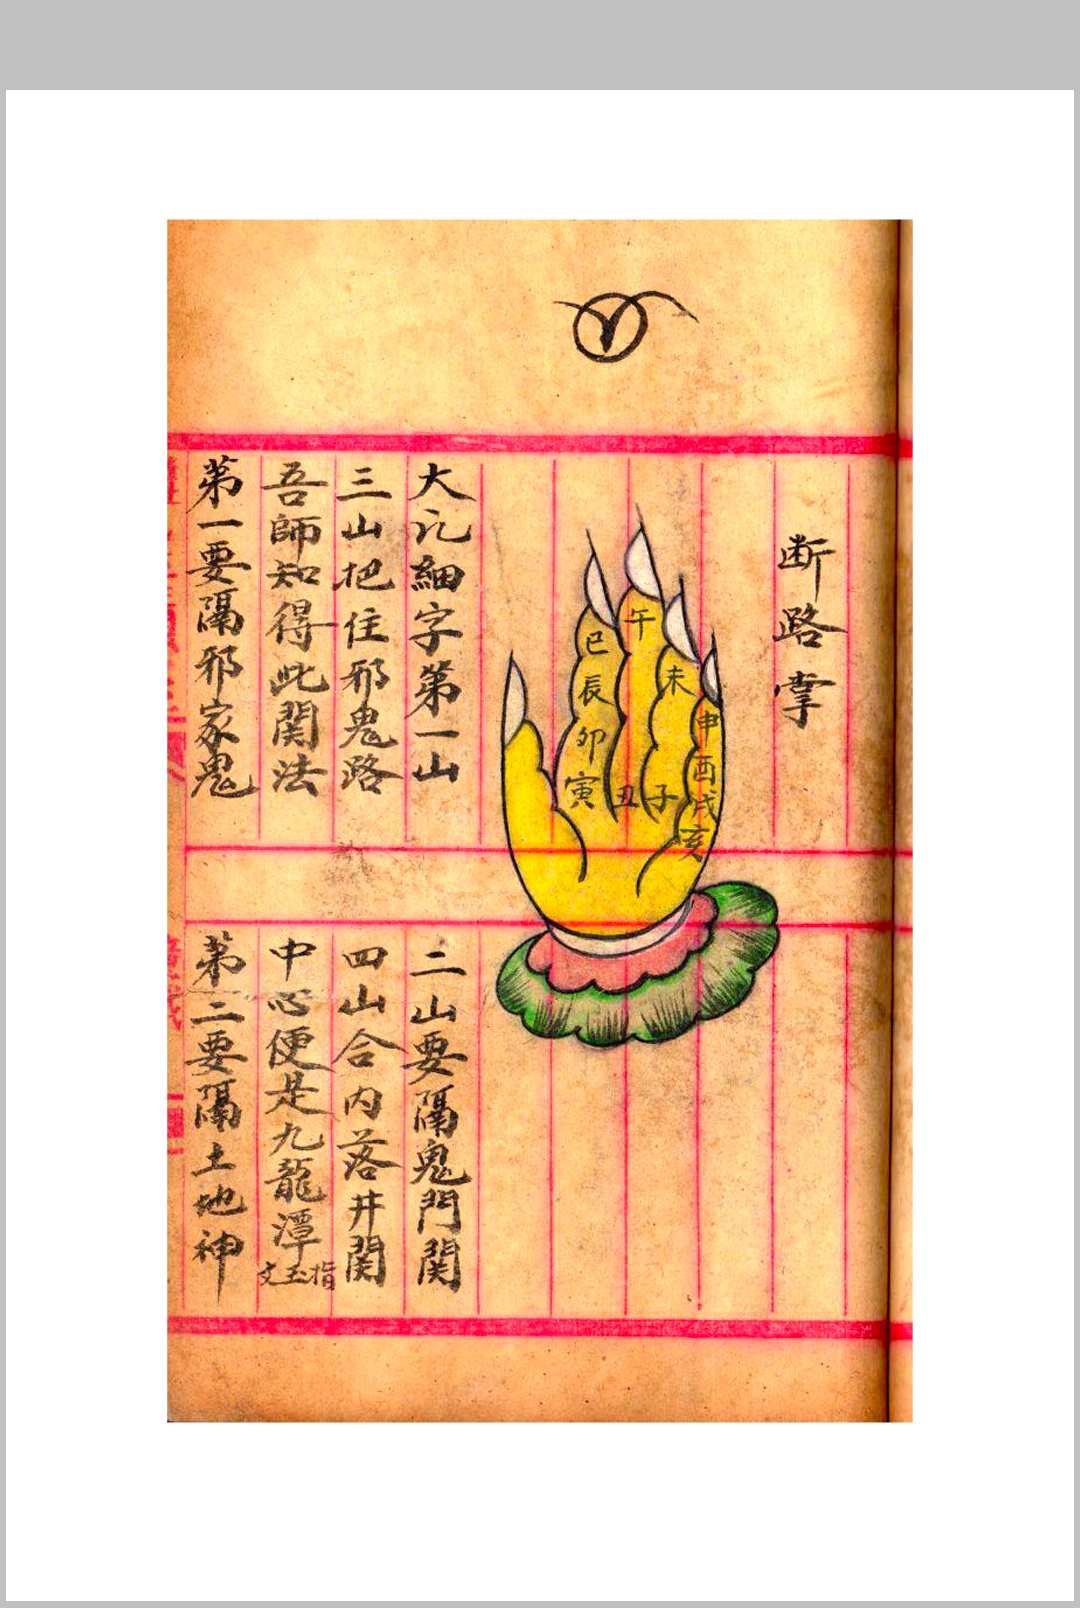 断路掌
巳
午
辰
未
卯
申
寅
丑
子
酉
戌
亥
大礼細字第一山
二山要隔鬼門関
三山把住邪鬼路
四山合内落井関
吾師知得此関法
中心便是九龍潭
指玉文
第一要隔邪家鬼
第二要隔土地神